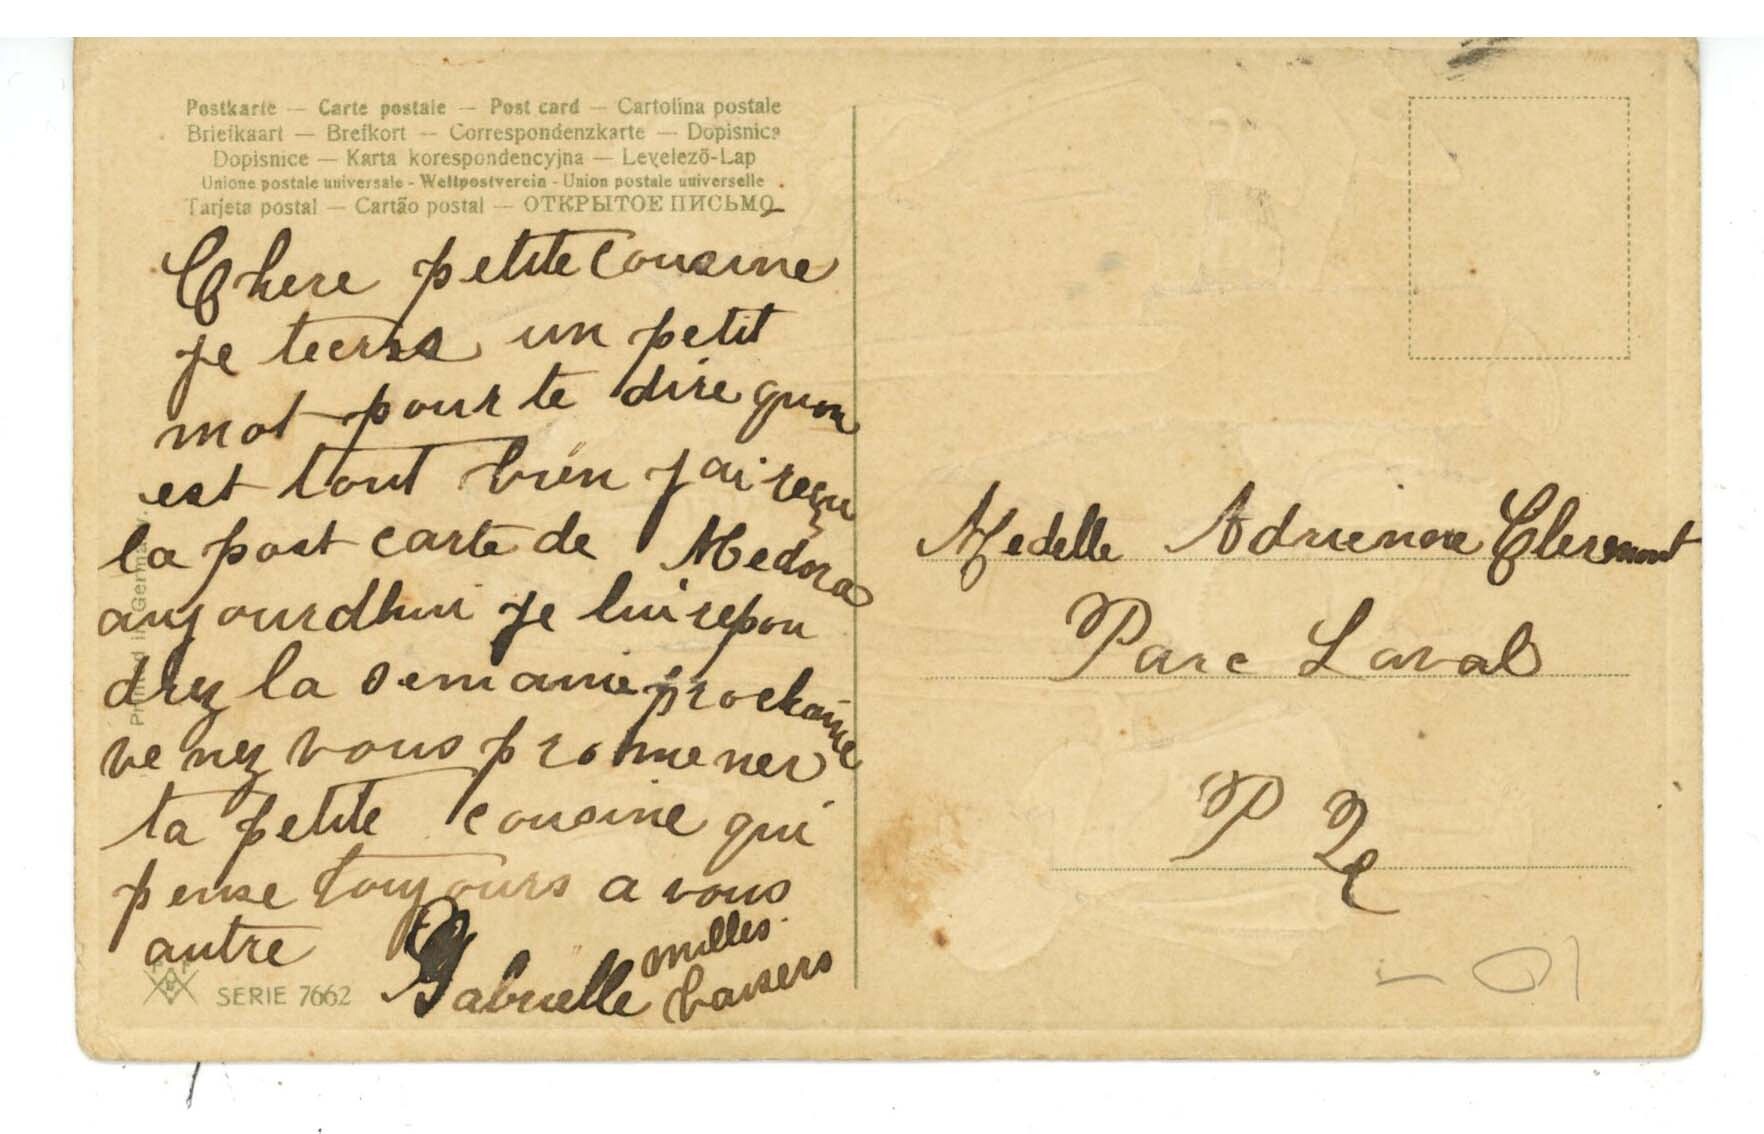 Postkarte — Carte postale — Post card — Cartolina postale
Briefkaart — Brefkort — Correspondenzkarte — Dopisnica
Dopisnice — Karta korespondencyjna — Levelező-Lap
Unione postale universale - Weltpostverein - Union postale universelle
Tarjeta postal — Cartão postal — ОТКРЫТОЕ ПИСЬМО
Chere petite cousine
je tecris un petit
mot pour te dire quon
est tout bien jai reçu
la post carte de Medora
aujourdhui je lui repon
drez la semaine prochaine
venez vous promener
ta petite cousine qui
pense toujours a vous
autre Gabrielle milles
baisers
Printed in Germany
SERIE 7662
Medelle Adrienne Clermont
Parc Laval
P Q